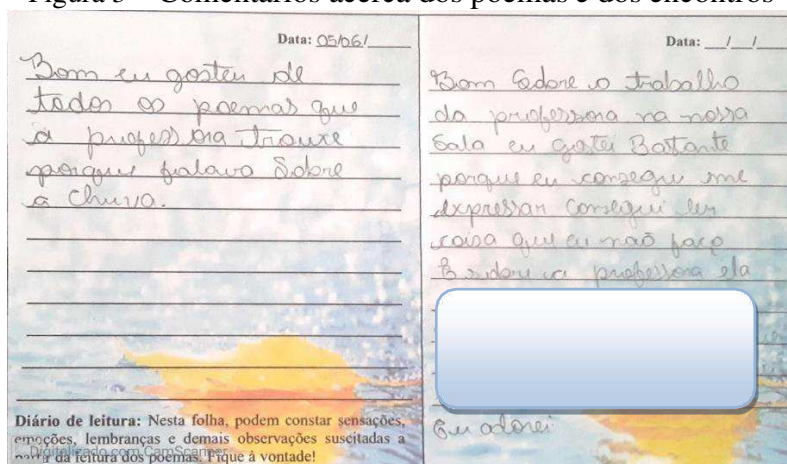 Figura 3 – Comentários acerca dos poemas e dos encontros
Data: 05/06/
Bom eu gostei de
todos os poemas que
a professora Trouxe
porque falava Sobre
a Chuva.
Diário de leitura: Nesta folha, podem constar sensações,
emoções, lembranças e demais observações suscitadas a
partir da leitura dos poemas. Fique à vontade!
Digitalizado com CamScanner
Data: __/__/__
Bom Sobre o trabalho
da professora na nossa
Sala eu gostei Bastante
porque eu consegui me
expressar Consegui ler
coisa que eu não faço
E sobre a professora ela
Eu adorei